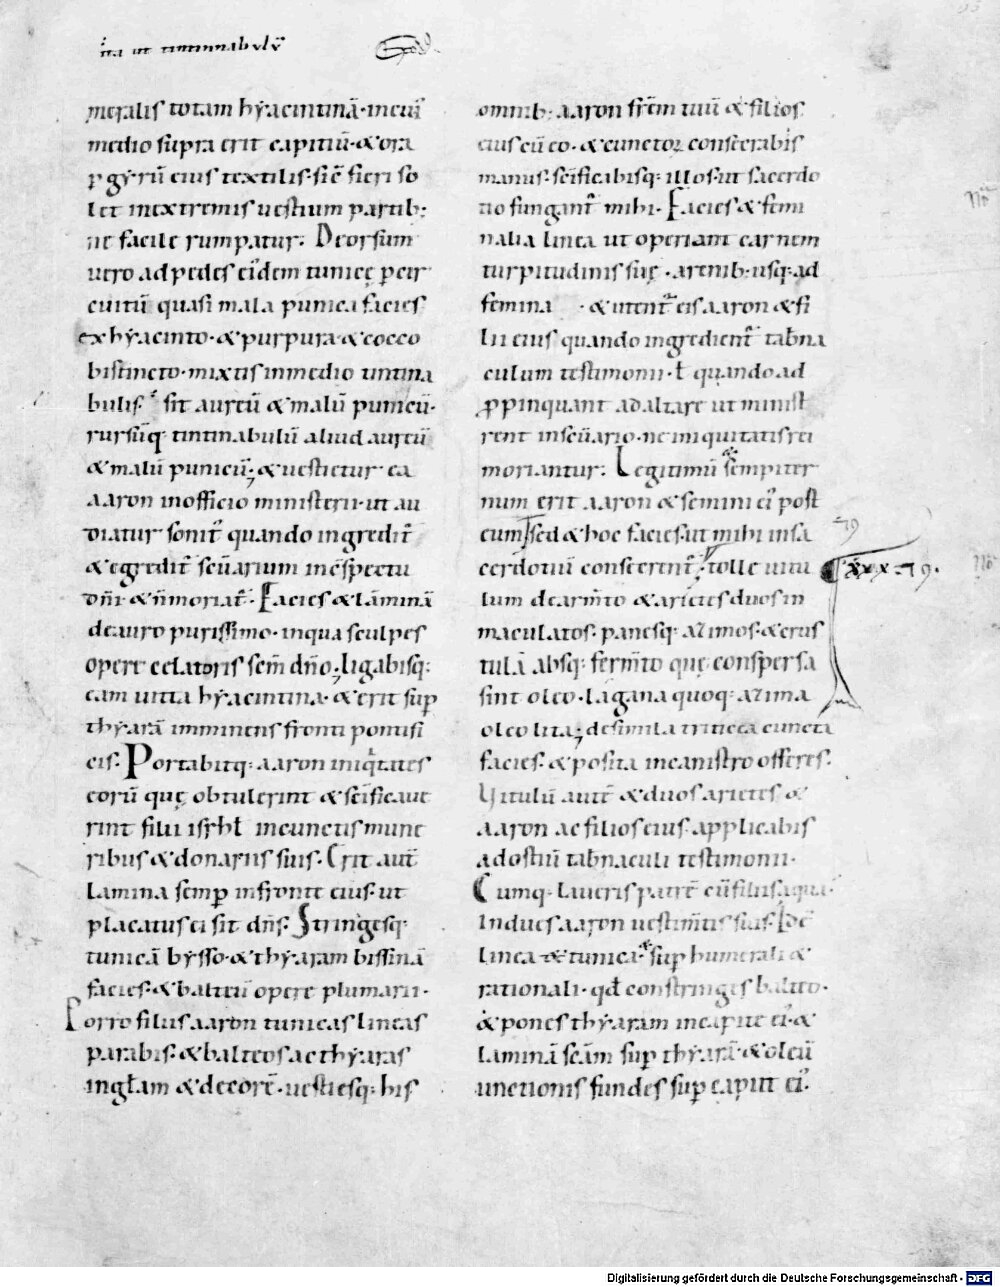 ita ut tintinnabulū
meralis totam hyacintinā· incuiꝰ
medio supra erit capitiū· & ora
ꝑ gyrū eius textilis· sic̄ fieri so
let inextremis uestium partib;
ne facile rumpatur. Deorsum
uero adpedes eiꝰdem tunicę ꝑ cir
cuitū quasi mala punica facies
ex hyacinto· & purpura· & cocco
bistincto· mixtis inmedio tintina
bulis. sit aureū & malū punicū·
rursūq; tintinabulū aliud aureū
& malū punicū; & uestietur ea
aaron inofficio ministerii· ut au
diatur sonitꝰ quando ingreditꝰ
& egreditꝰ sc̄uarium inc̄spectu
dn̄i· & n̄moriatꝰ. Facies & lāminā
deauro purissimo· inqua sculpes
opere celatoris sc̄m dn̄o, ligabisq;
eam uitta hyacintina· & erit suꝑ
thyarā imminens fronti pontifi
cis. Portabitq; aaron iniqͥtates
eorū quę obtulerint & sc̄ificaue
rint filii isrhł incunctis mune
ribus & donariis suis. Erit aut̄
lamina semꝑ infronte eius· ut
placatus ei sit dn̄s. Stringesq;
tunicā bysso· & thyaram bissinā
facies· & balteū opere plumarii·
Porro filiis aaron tunicas lineas
parabis· & balteos ac thyaras
inglam & decorē· uestiesq; his
omnib; aaron fr̄em tuū & filios
eius cū eo· & cunctoꝝ consecrabis
manus· sc̄ificabisq; illos· ut sacerdo
tio fungantꝰ mihi· Facies & femi
nalia linea ut operiant carnem
turpitudinis suę· a renib; usq; ad
femina · & utentꝰ eis aaron & fi
lii eius quando ingredientꝰ tab̄na
culum testimonii· ł quando ad
ꝓpinquant adaltare ut minist
rent insc̄uario· ne iniquitatis rei
moriantur. Legitimū sempiter
num erit aaron & semini eiꝰ post
eum sed & hoc facies· ut mihi insa
cerdotiū consecrentꝰ. tolle uitu
lum dearm̄to & arietes duos in
maculatos· panesq; azimos· & crus
tulā absq; ferm̄to quę conspersa
sint oleo· lagana quoq; azima
oleo lita; desimila triticea cuncta
facies· & posita incanistro offeres.
Vitulū aut̄ & duos arietes &
aaron ac filios eius· applicabis
adostiū tab̄naculi testimonii·
Cumq; laueris patrē cū filiis aqua·
Indues aaron uestim̄tis suis· Id ē
linea & tunica suꝑ humerali &
rationali· qđ constringes balteo·
& pones thyaram incapite eiꝰ· &
laminā sc̄am suꝑ thyarā· & oleū
unctionis fundes suꝑ caput eiꝰ.
Digitalisierung gefördert durch die Deutsche Forschungsgemeinschaft - DFG